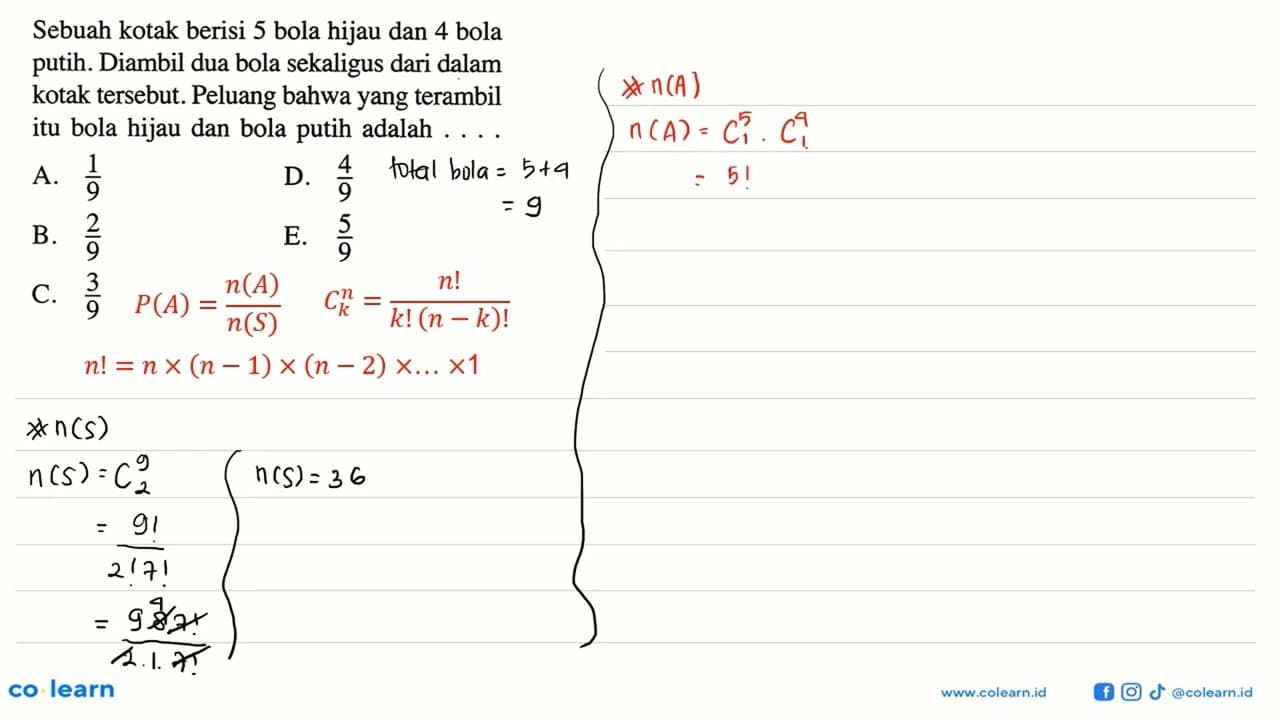 Sebuah kotak berisi 5 bola hijau dan 4 bola
putih. Diambil dua bola sekaligus dari dalam
kotak tersebut. Peluang bahwa yang terambil
itu bola hijau dan bola putih adalah . . . .
A. 1/9
D. 4/9
B. 2/9
E. 5/9
C. 3/9
total bola = 5+4
= 9
P(A) = n(A)/n(S)
C_k^n = n!/(k!(n − k)!)
n! = n × (n − 1) × (n − 2) ×... ×1
* n(S)
n(S) = C_2^9
= 9!/(2!7!)
= 9 8 4 7!/(2.1.7!)
n(S) = 36
* n(A)
n(A) = C_1^5 . C_1^4
= 5!
co learn
www.colearn.id
@colearn.id